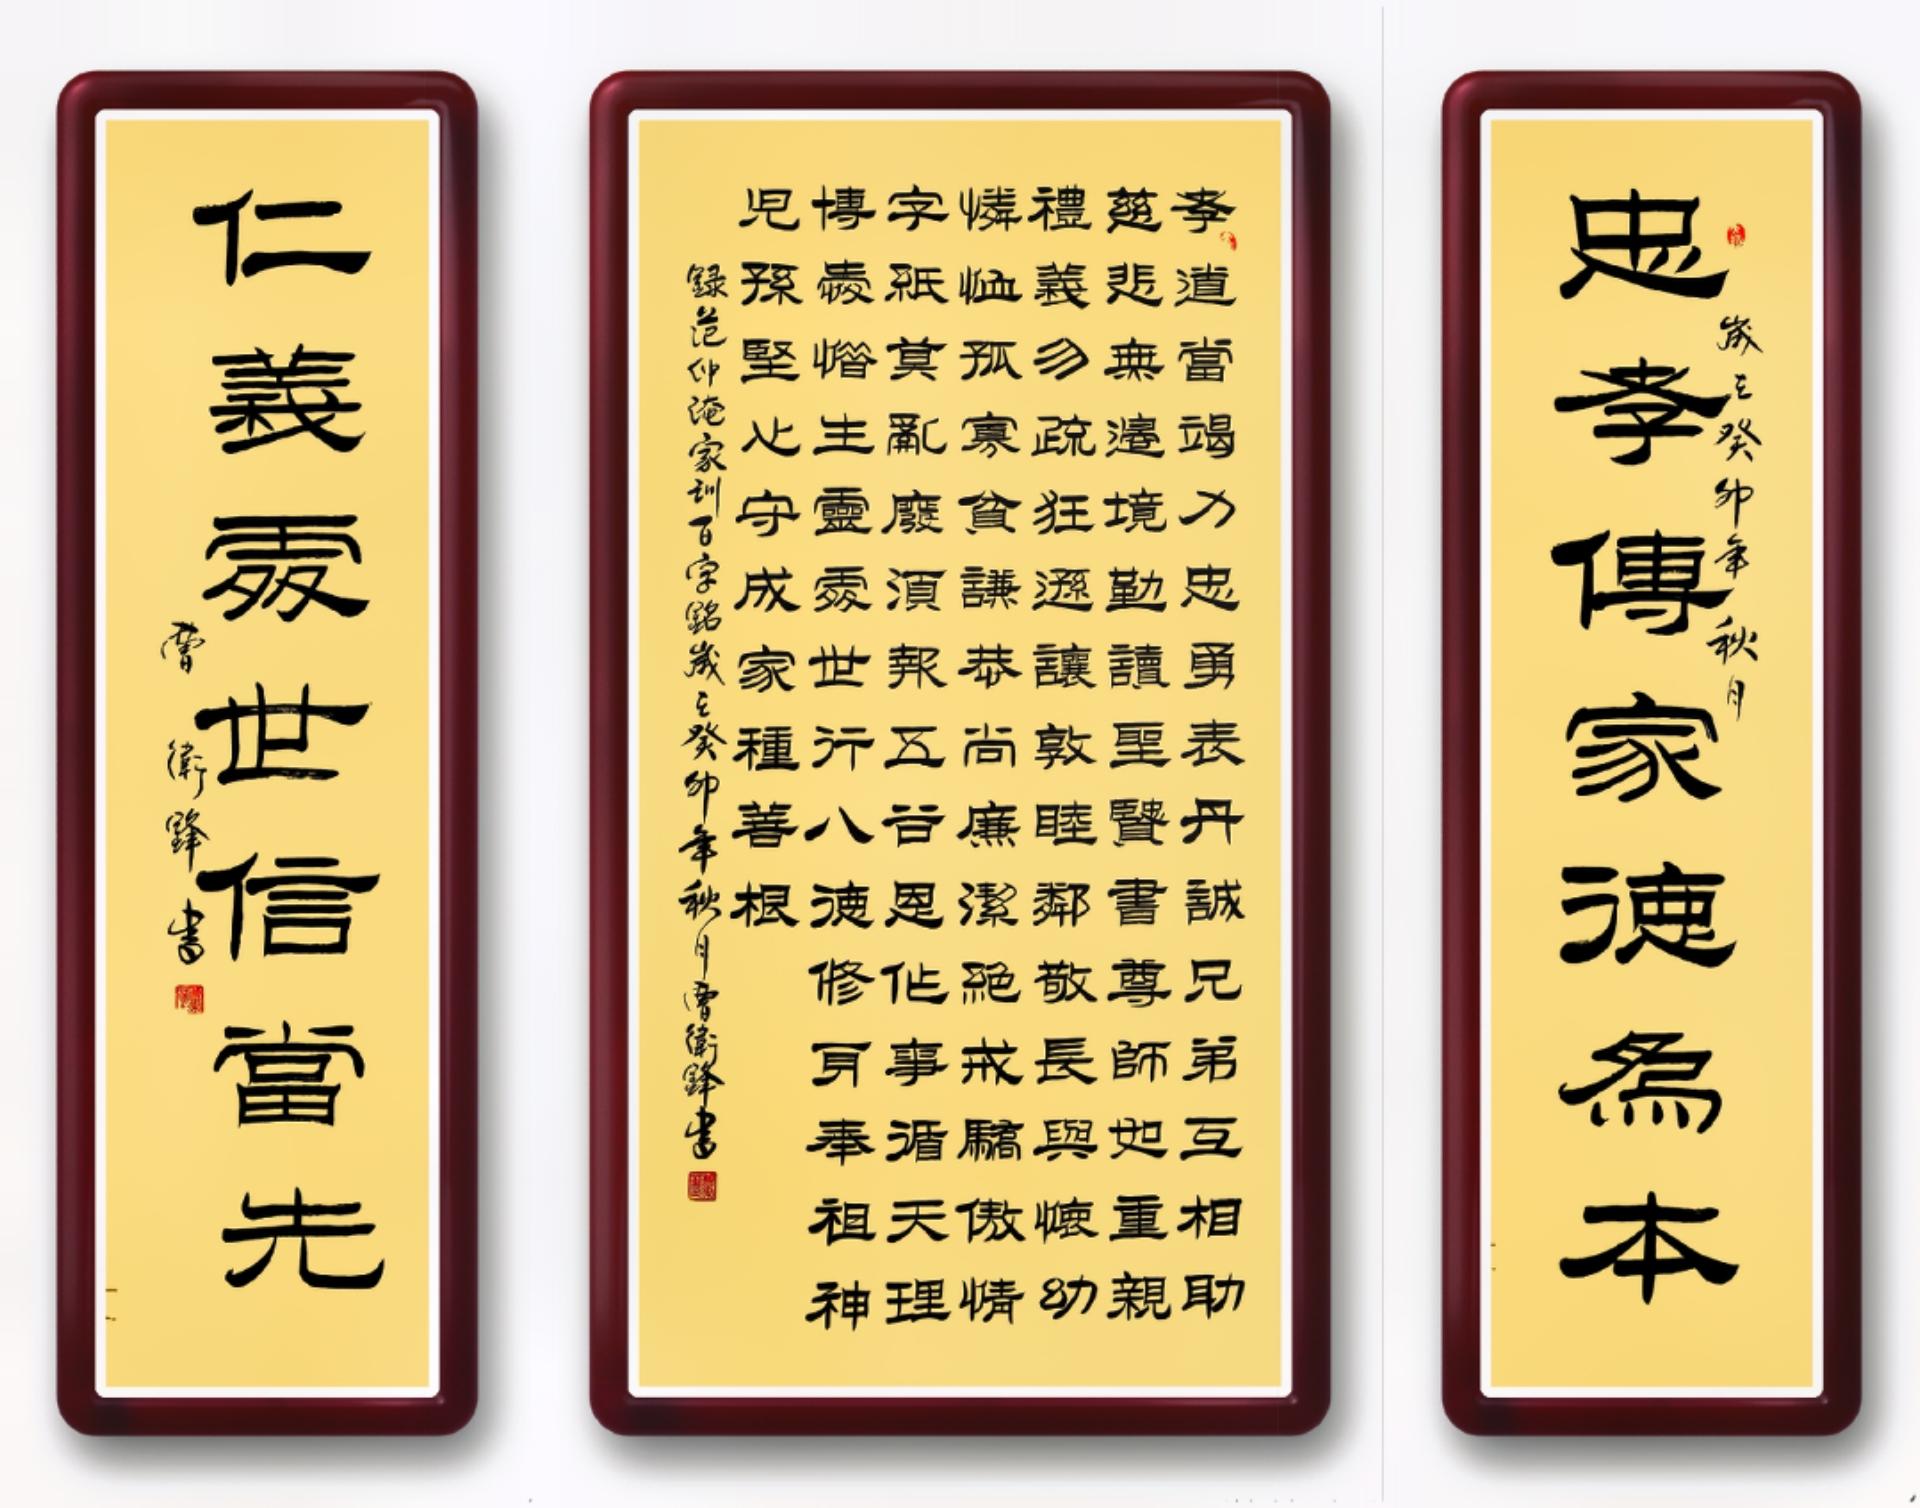 歲在癸卯年秋月
忠孝傳家德為本
孝道當竭力忠勇表丹誠兄弟互相助
慈悲無邊境勤讀聖賢書尊師如重親
禮義勿疏狂遜讓敦睦鄰敬長與懷幼
憐恤孤寡貧謙恭尚廉潔絕戒驕傲情
字紙莫亂廢須報五谷恩作事循天理
博愛惜生靈處世行八德修身奉祖神
児孫堅心守成家種善根
録范仲淹家訓百字銘歲在癸卯年秋月曹衛鋒書
仁義處世信當先
曹衛鋒書